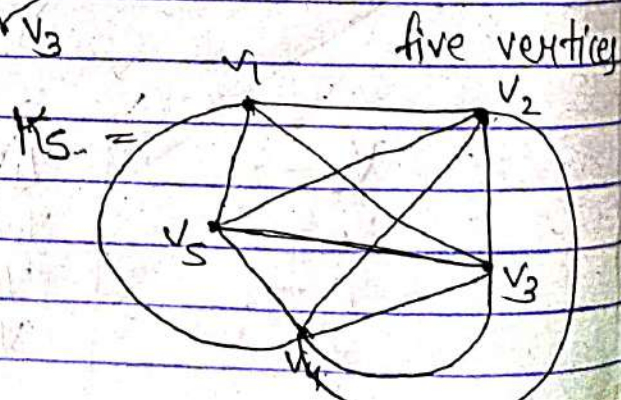 V3
five vertices
V1
V2
K5 =
V5
V3
V4